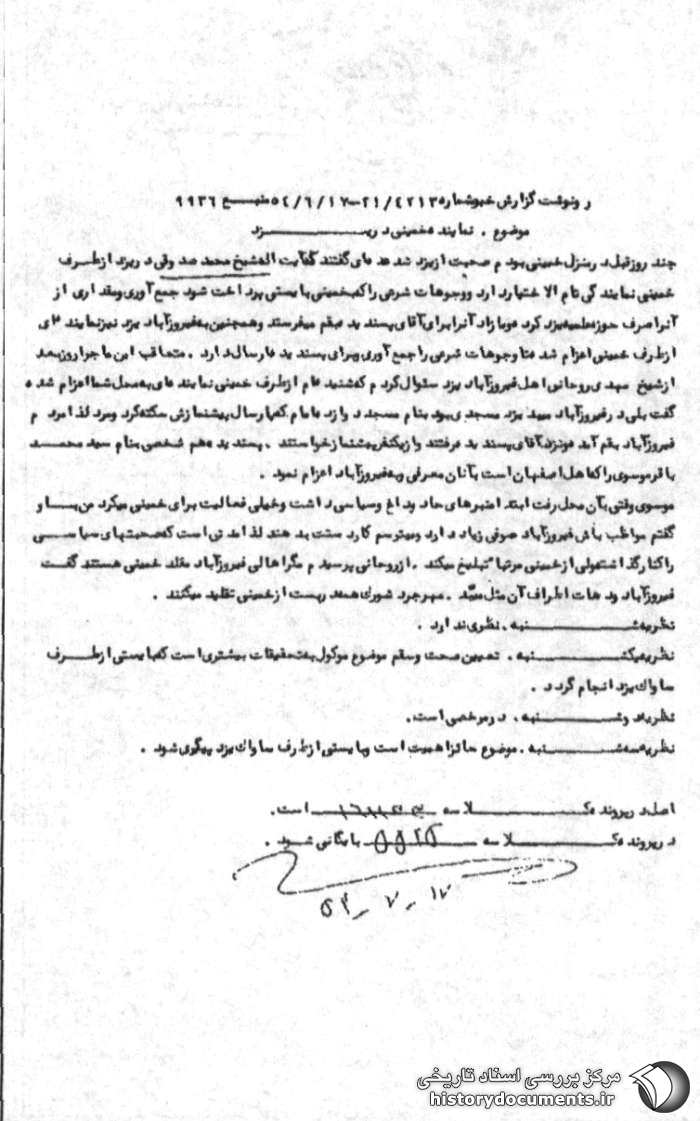 رونوشت گزارش خبر شماره ۲۱/٤۲۱۳۵-۵٤/٦/۱۷ منبع ۹۹۳٦
موضوع . نماینده خمینی در یزد
چند روز قبل در منزل خمینی بودم صحبت از یزد شد عده ای گفتند که آیت اله شیخ محمد صدوقی در یزد از طرف
خمینی نمایندگی تام الاختیار دارد و وجوهات شرعی را که به خمینی بایستی پرداخت شود جمع آوری و مقداری از
آنرا صرف حوزه علمیه یزد کرده و مازاد آنرا برای آقای پسندیده بقم میفرستد و همچنین به فیروزآباد یزد نیز نماینده ای
از طرف خمینی اعزام شده تا وجوهات شرعی را جمع آوری و برای پسندیده ارسال دارد . متعاقب این ماجرا روز بعد
از شیخ مهدی روحانی اهل فیروزآباد یزد سئوال کردم که شنیده ام از طرف خمینی نماینده ای به محل شما اعزام شده
گفت بلی در فیروزآباد میبد یزد مسجدی بود بنام مسجد دوازده امام که پارسال پیشنمازش سکته کرد و مرد لذا مردم
فیروزآباد بقم آمده و نزد آقای پسندیده رفتند و از یکنفر پیشنماز خواستند . پسندیده هم شخصی بنام سید محمد
باقر موسوی را که اهل اصفهان است بآنان معرفی و به فیروزآباد اعزام نمود .
موسوی وقتی بآن محل رفت ابتدا منبرهای حاد و داغ و سیاسی داشت و خیلی فعالیت برای خمینی میکرد من باو
گفتم مواظب باش فیروزآباد صوفی زیاد دارد و میترسم کار دستت بدهند لذا مدتی است که صحبتهای سیاسی
را کنار گذاشته ولی از خمینی مرتبا" تبلیغ میکند . از روحانی پرسیدم مگر اهالی فیروزآباد مقلد خمینی هستند گفت
فیروزآباد و دهات اطراف آن مثل میبد . مهرجرد شورک همه در بست از خمینی تقلید میکنند .
نظریه شنبه . نظری ندارد .
نظریه یکشنبه . تعیین صحت و سقم موضوع موکول به تحقیقات بیشتری است که بایستی از طرف
ساواک یزد انجام گردد .
نظریه دوشنبه . در مرخصی است .
نظریه سه شنبه . موضوع حائز اهمیت است و بایستی از طرف ساواک یزد پیگیری شود .
اصل در پرونده کلاسه است .
در پرونده کلاسه بایگانی شود .
۱۷ - ۷ - ۵۴
مرکز بررسی اسناد تاریخی
historydocuments.ir